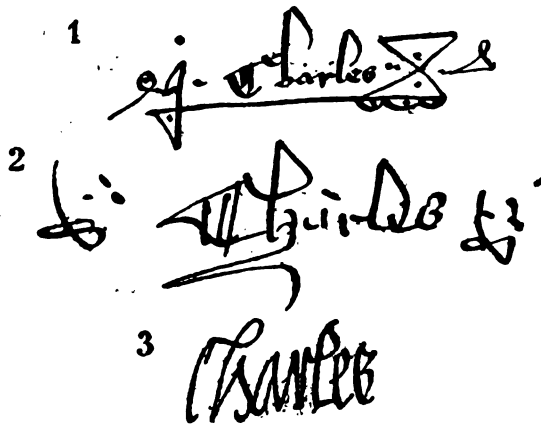 1 Charles
2 Charles
3 Charles